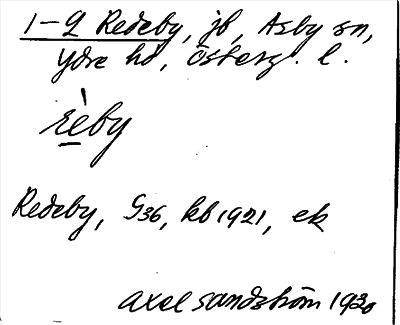 1-2 Redeby, jb, Asby sn,
Ydre hd, Österg. l.
rèby
Redeby, G36, kb 1921, ek
Axel Sandström 1930